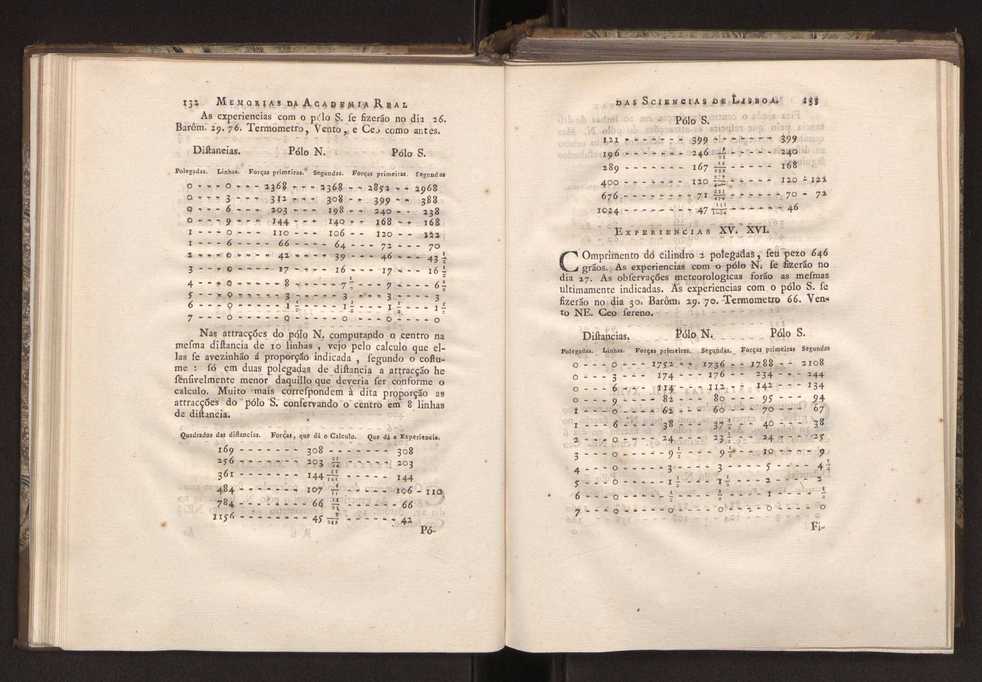 132 MEMORIAS DA ACADEMIA REAL
As experiencias com o pólo S. ſe fizerão no dia 26.
Barôm. 29. 76. Termometro, Vento, e Ceo como antes.
Diſtancias. Pólo N. Pólo S.
Polegadas. Linhas. Forças primeiras. Segundas. Forças primeiras. Segundas
0 - - - 0 - - - 2368 - - - 2368 - - 2852 - - 2968
0 - - - 3 - - - 312 - - - 308 - - 399 - - 388
0 - - - 6 - - - 203 - - - 198 - - 240 - - 238
0 - - - 9 - - - 144 - - - 140 - - 168 - - 168
1 - - - 0 - - - 110 - - - 106 - - 120 - - 122
1 - - - 6 - - - 66 - - - 64 - - 72 - - - 70
2 - - - 0 - - - 42 - - - 39 - - 46 - - - 43 1/2
3 - - - 0 - - - 17 - - - 16 - - - 17 - - - 16 1/2
4 - - - 0 - - - 8 - - - 7 1/2 - - 9 - - - 6 1/2
5 - - - 0 - - - 3 - - - 3 - - - 3 - - - 3
6 - - - 0 - - - 1 1/2 - - - 1 1/2 - - - 1 1/2 - - - 1 1/2
7 - - - 0 - - - 0 - - - 0 - - - 0 - - - 0
Nas attracções do pólo N. computando o centro na
meſma diſtancia de 10 linhas , vejo pelo calculo que el-
las ſe avezinhão á proporção indicada , ſegundo o coſtu-
me : ſó em duas polegadas de diſtancia a attracção he
ſenſivelmente menor daquillo que deveria ſer conforme o
calculo. Muito mais correſpondem à dita proporção as
attracções do pólo S. conſervando o centro em 8 linhas
de diſtancia.
Quadrados das diſtancias. Forças, que dá o Calculo. Que dá a Experiencia.
169 - - - - - - - 308 - - - - - - - 308
256 - - - - - - - 203 - - - - - - 203
361 - - - - - - - 144 - - - - - - 144
484 - - - - - - - 107 - - - - - - 106 - 110
784 - - - - - - - 66 - - - - - - 66
1156 - - - - - - - 45 - - - - - - 42
Pó-
DAS SCIENCIAS DE LISBOA. 133
Pólo S.
121 - - - - - - - 399 - - - - - - - 399
196 - - - - - - - 246 - - - - - - 240
289 - - - - - - - 167 - - - - - - 168
400 - - - - - - - 120 - - - - - - 120 - 122
676 - - - - - - - 71 - - - - - - 70 - 72
1024 - - - - - - - 47 - - - - - - 46
EXPERIENCIAS XV. XVI.
COmprimento dó cilindro 2 polegadas, ſeu pezo 646
grãos. As experiencias com o pólo N. ſe fizerão no
dia 27. As obſervações meteorologicas forão as meſmas
ultimamente indicadas. As experiencias com o pólo S. ſe
fizerão no dia 30. Barôm. 29. 70. Termometro 66. Ven-
to NE. Ceo ſereno.
Diſtancias. Pólo N. Pólo S.
Polegadas. Linhas. Forças primeiras. Segundas. Forças primeiras Segundas
0 - - - 0 - - - 1752 - - 1736 - - 1788 - - 2108
0 - - - 3 - - - 174 - - - 176 - - 234 - - - 244
0 - - - 6 - - - 114 - - - 112 - - 142 - - - 134
0 - - - 9 - - - 82 - - - 80 - - - 95 - - - 94
1 - - - 0 - - - 62 - - - 60 - - - 70 - - - 67
1 - - - 6 - - - 38 - - - 37 1/2 - - 40 - - - 38
2 - - - 0 - - - 24 - - - 23 1/2 - - 24 - - - 25
3 - - - 0 - - - 9 1/2 - - - 9 1/2 - - 10 - - - 9
4 - - - 0 - - - 3 - - - 3 - - - 5 - - - 4 1/2
5 - - - 0 - - - 1 1/2 - - - 1 1/2 - - - 2 - - - 2
6 - - - 0 - - - 1/2 - - - 1/2 - - - 1 - - - 1/2
7 - - - 0 - - - 0 - - - 0 - - - 0 - - - 0
Fi-